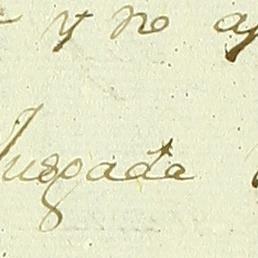 y no
Juzgada